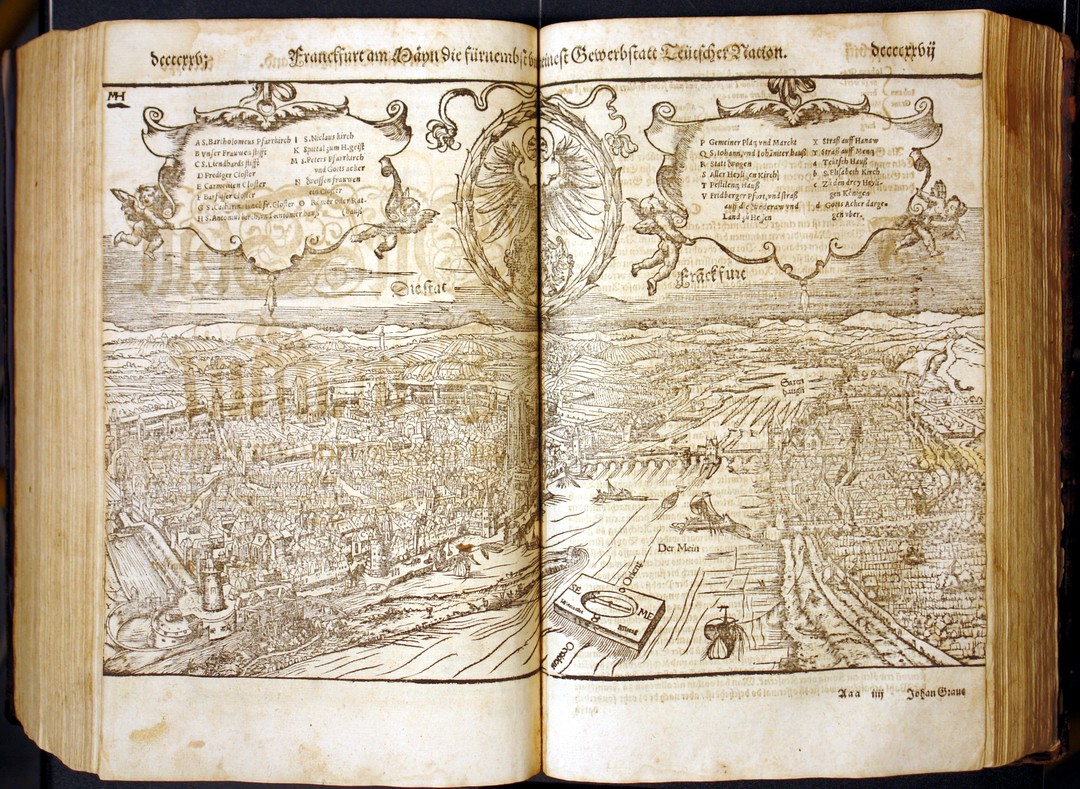 dccccxxvj
Franckfurt am Mäyn die fürnembst
einest Gewerbstatt Teütscher Nation.
dccccxxvij
MH
A S. Bartholomeus Pfarrkirch
B Vnser Frawen stifft
C S. Lienhardt stifft
D Prediger Closter
E Carmeliten Closter
F Barfusser Closter
G S. Catharin Closter
H S. Antonius
I S. Niclaus kirch
K Spittal zum H. geist
M S. Peters Pfarrkirch
vnd Gotts acker
N Zweissen frawwen
ein Closter
O Römer oder Rat-
hauss
P Gemeiner Platz vnd Marckt
Q S. Johann, vnd Johāniter hauss
R Statt wogen
S Aller Heyligen Kirch
T Pestilentz Hauss
V Fridberger Pfort, vnd strass
auss die Wederaw vnd
Land zu Hessen
X Strass auff Hanaw
Y Strass auff Mentz
a Teütsch Hauss
b S. Elisabeth Kirch
c Zu den drey Heyli-
gen Königen
d Gotts Acker darge-
gen vber.
Die stat
Franckfurt
Saxen
hausen
Der Mein
Orient
SE
ME
Occident
Aaa iiij Johan Graue